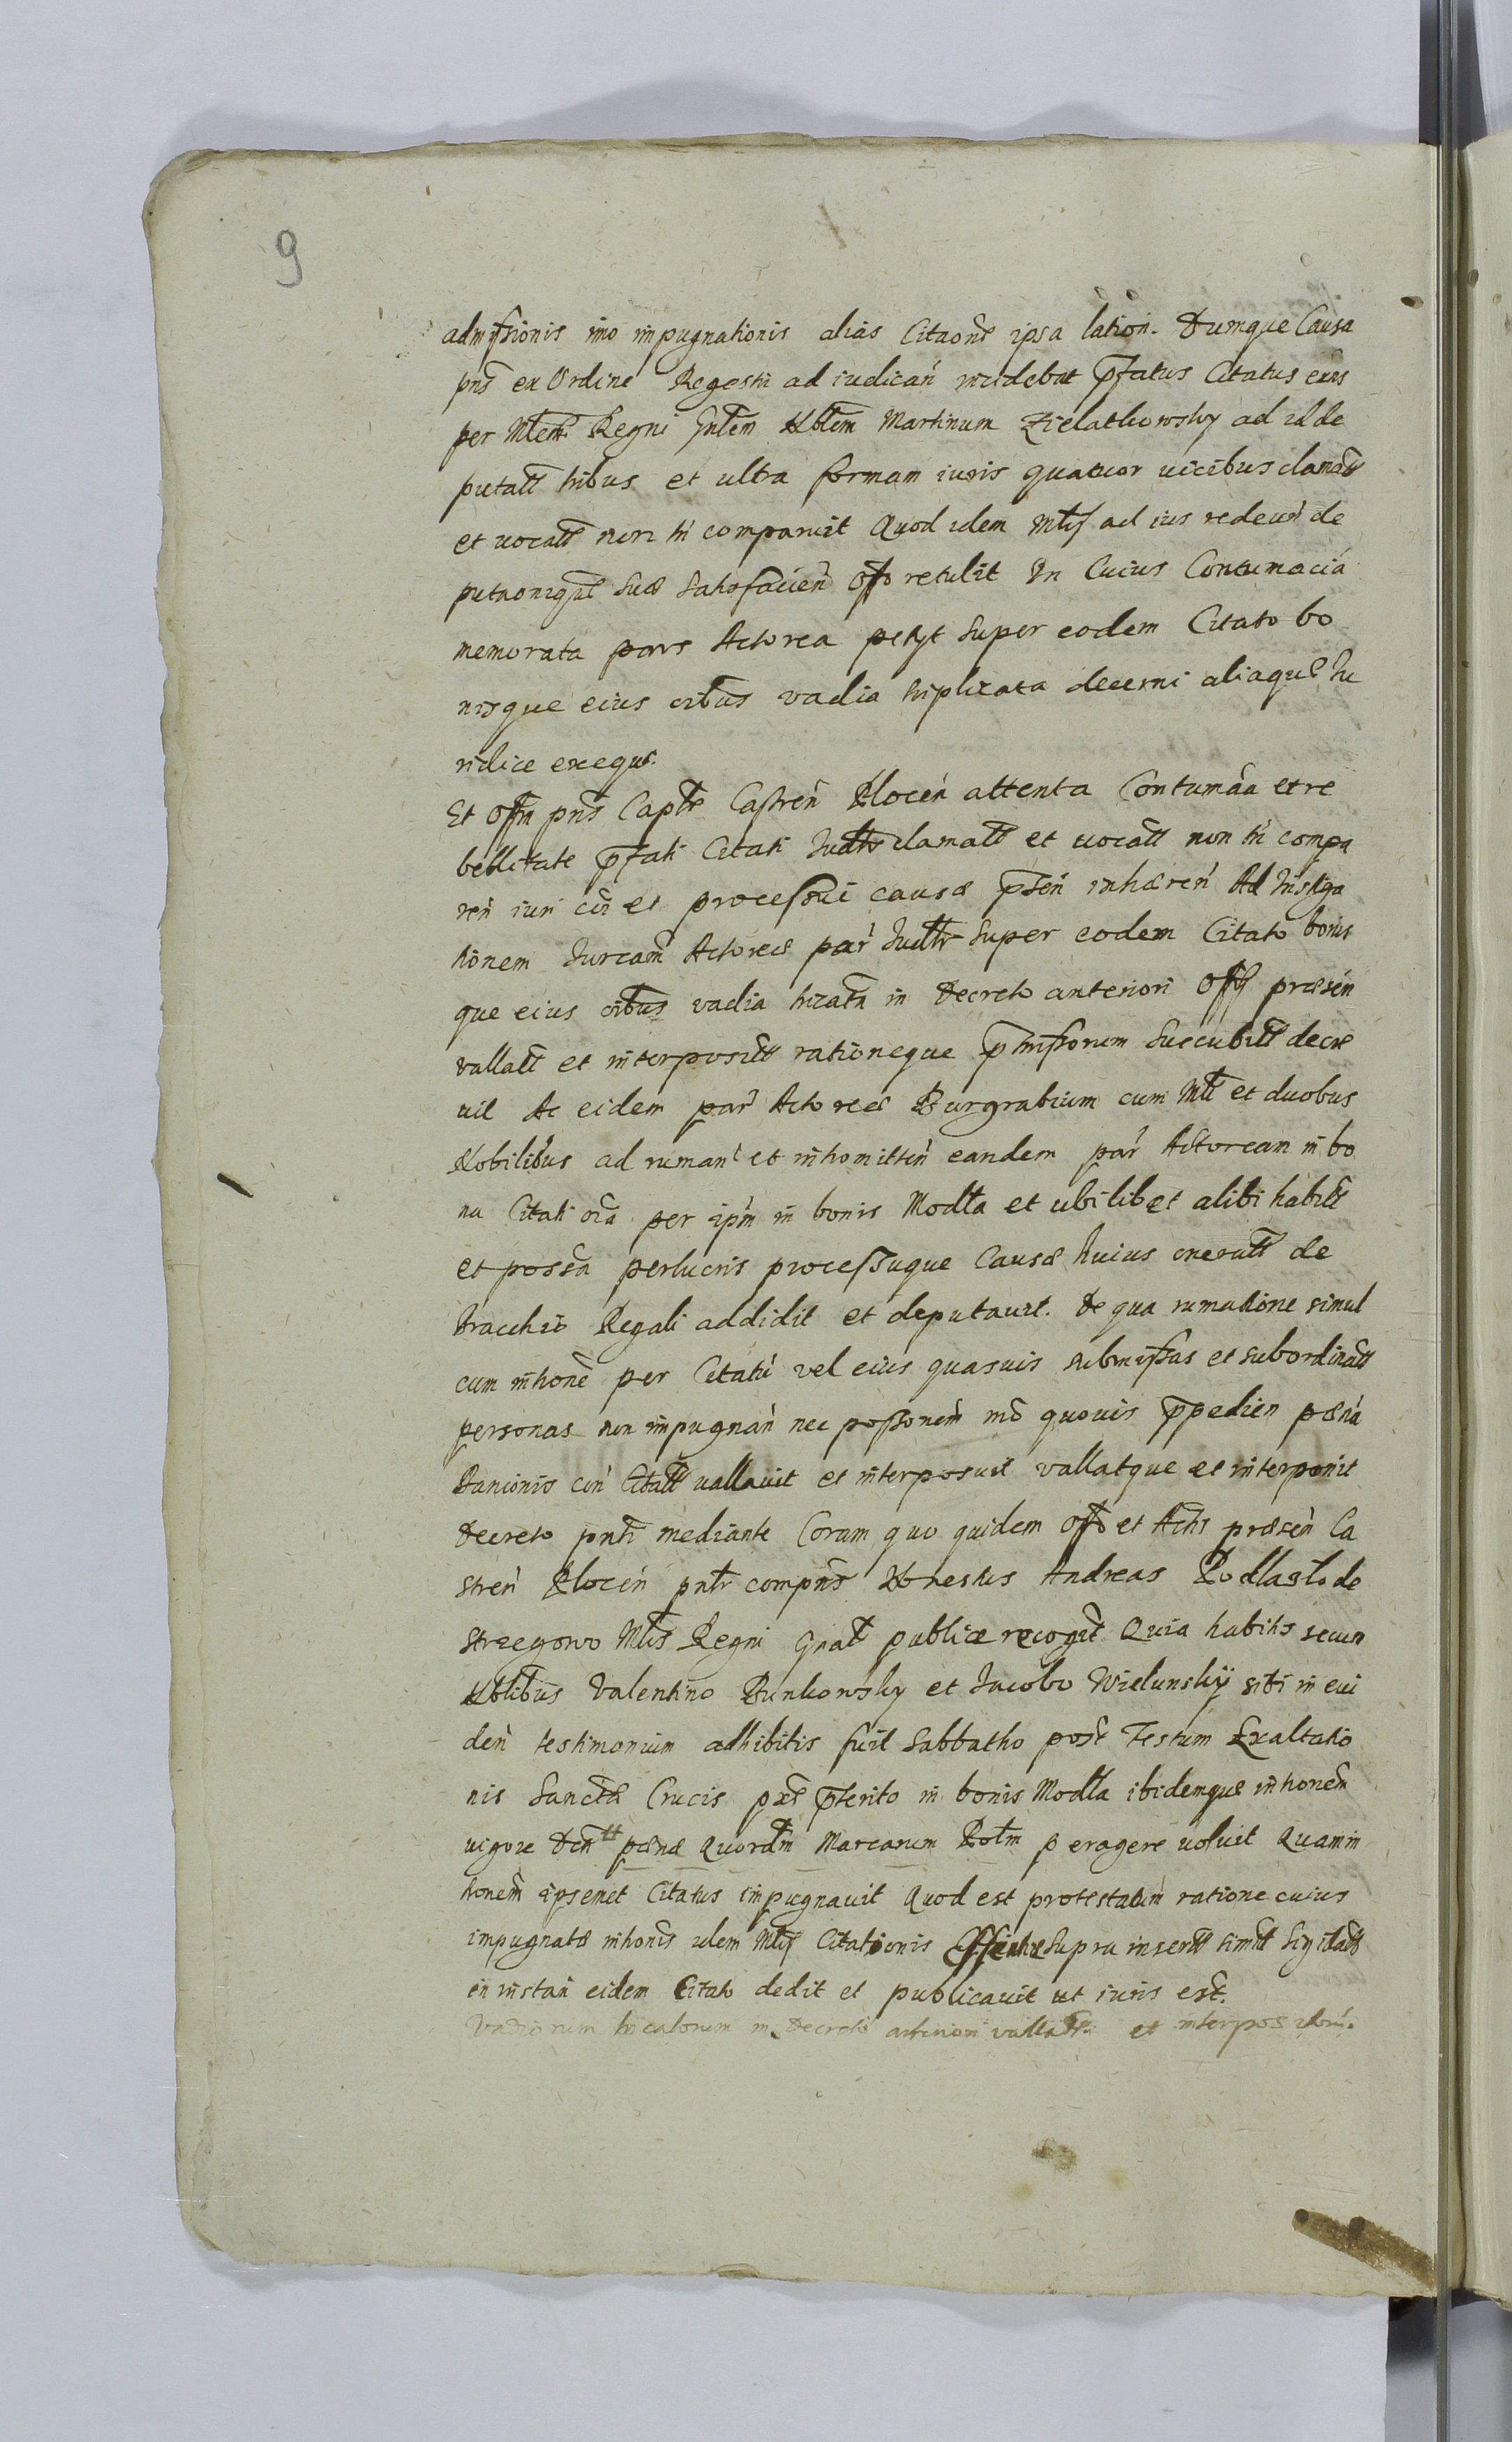 9
admissionis imo impugnationis alias Citaone ipsa lation. Dumque Causa
pns ex Ordine Regestri ad iudican incidebat pfatus Citatus eius
per Mlem Regni Gnlem Nblem Martinum Zielathowsky ad id de
putatt tribus et ultra formam iuris quatuor vicibus clamatt
et vocatt non tn comparuit Quod idem Mlis ad ius redeun de
putaoniqúe suae satisfacien Offo retulit In Cuius Contumacia
memorata pars Actorea petyt super eodem Citato bo
nisque eius oibus vadia triplicata decerni aliaque Iu
ridice exequi.
Et Offm pns Caple Castren Plocen attenta Contumaa et re
bellitate pfati Citati Iudlr clamatt et vocatt non tn compa
ren iuri cui et processui causae psen inhaeren Ad Instiga
tionem Iurcam Actoreae par Iudlr super eodem Citato bonis
que eius oibus vadia tricata in Decreto anteriori Offy praesen
vallatt et interpositt rationeque pmissorum succubitt decre
vit Ac eidem par Actoreae Burgrabium cum Mli et duobus
Nobilibus ad ruman et intromitten eandem par Actoream in bo
na Citati oia per ipm in bonis Modla et ubilibet alibi habitt
et possa perlucris processuque Causae huius oneratt de
Bracchio Regali addidit et deputavit. De qua rumatione simul
cum introne per Citatu vel eius quasuis submissas et subordinatt
personas non impugnan nec possonem mo quovis ppedien paena
Banionis con Citatt vallavit et interposuit vallatque et interponit
Decreto pnti mediante Coram quo quidem Offo et Actis praesen Ca
stren Plocen pntr compns Honestus Andreas Podlasło de
Strzegowo Mlis Regni Gnalt publice recogt Quia habitis secum
Nblibus Valentino Bunkowsky et Iacobo Wielunsky sibi in evi
den testimonium adhibitis fuit Sabbatho post Festum Exaltatio
nis Sanctae Crucis pxe pterito in bonis Modla ibidemque intronem
vigore Dem paenae Quordm Marcarum Polm peragere voluit Quam in
tronem ipsemet Citatus impugnavit Quod est protestatum ratione cuius
impugnatae intronis idem Mlis Citationis supra insertt simul sigilatt
in instan eidem Citato dedit et publicavit ut iuris est.
Vadiorum tricatorum in Decreto anteriori vallator et interpositor.